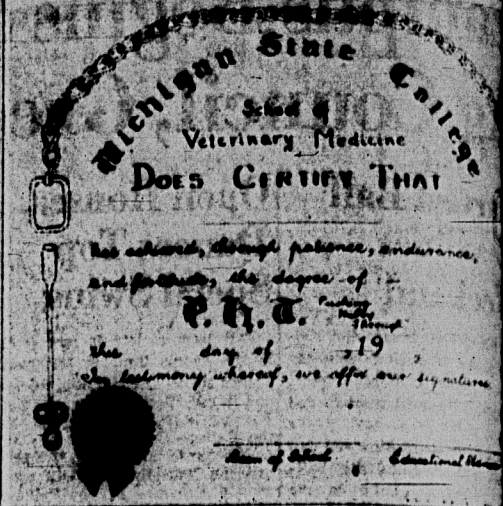 Michigan State College
School of
Veterinary Medicine
DOES CERTIFY THAT
has achieved, through patience, endurance,
and fortitude, the degree of
P. H. T. Pushing
Hubby
Through
this day of , 19 ,
In testimony whereof, we affix our signatures
Dean of School Educational